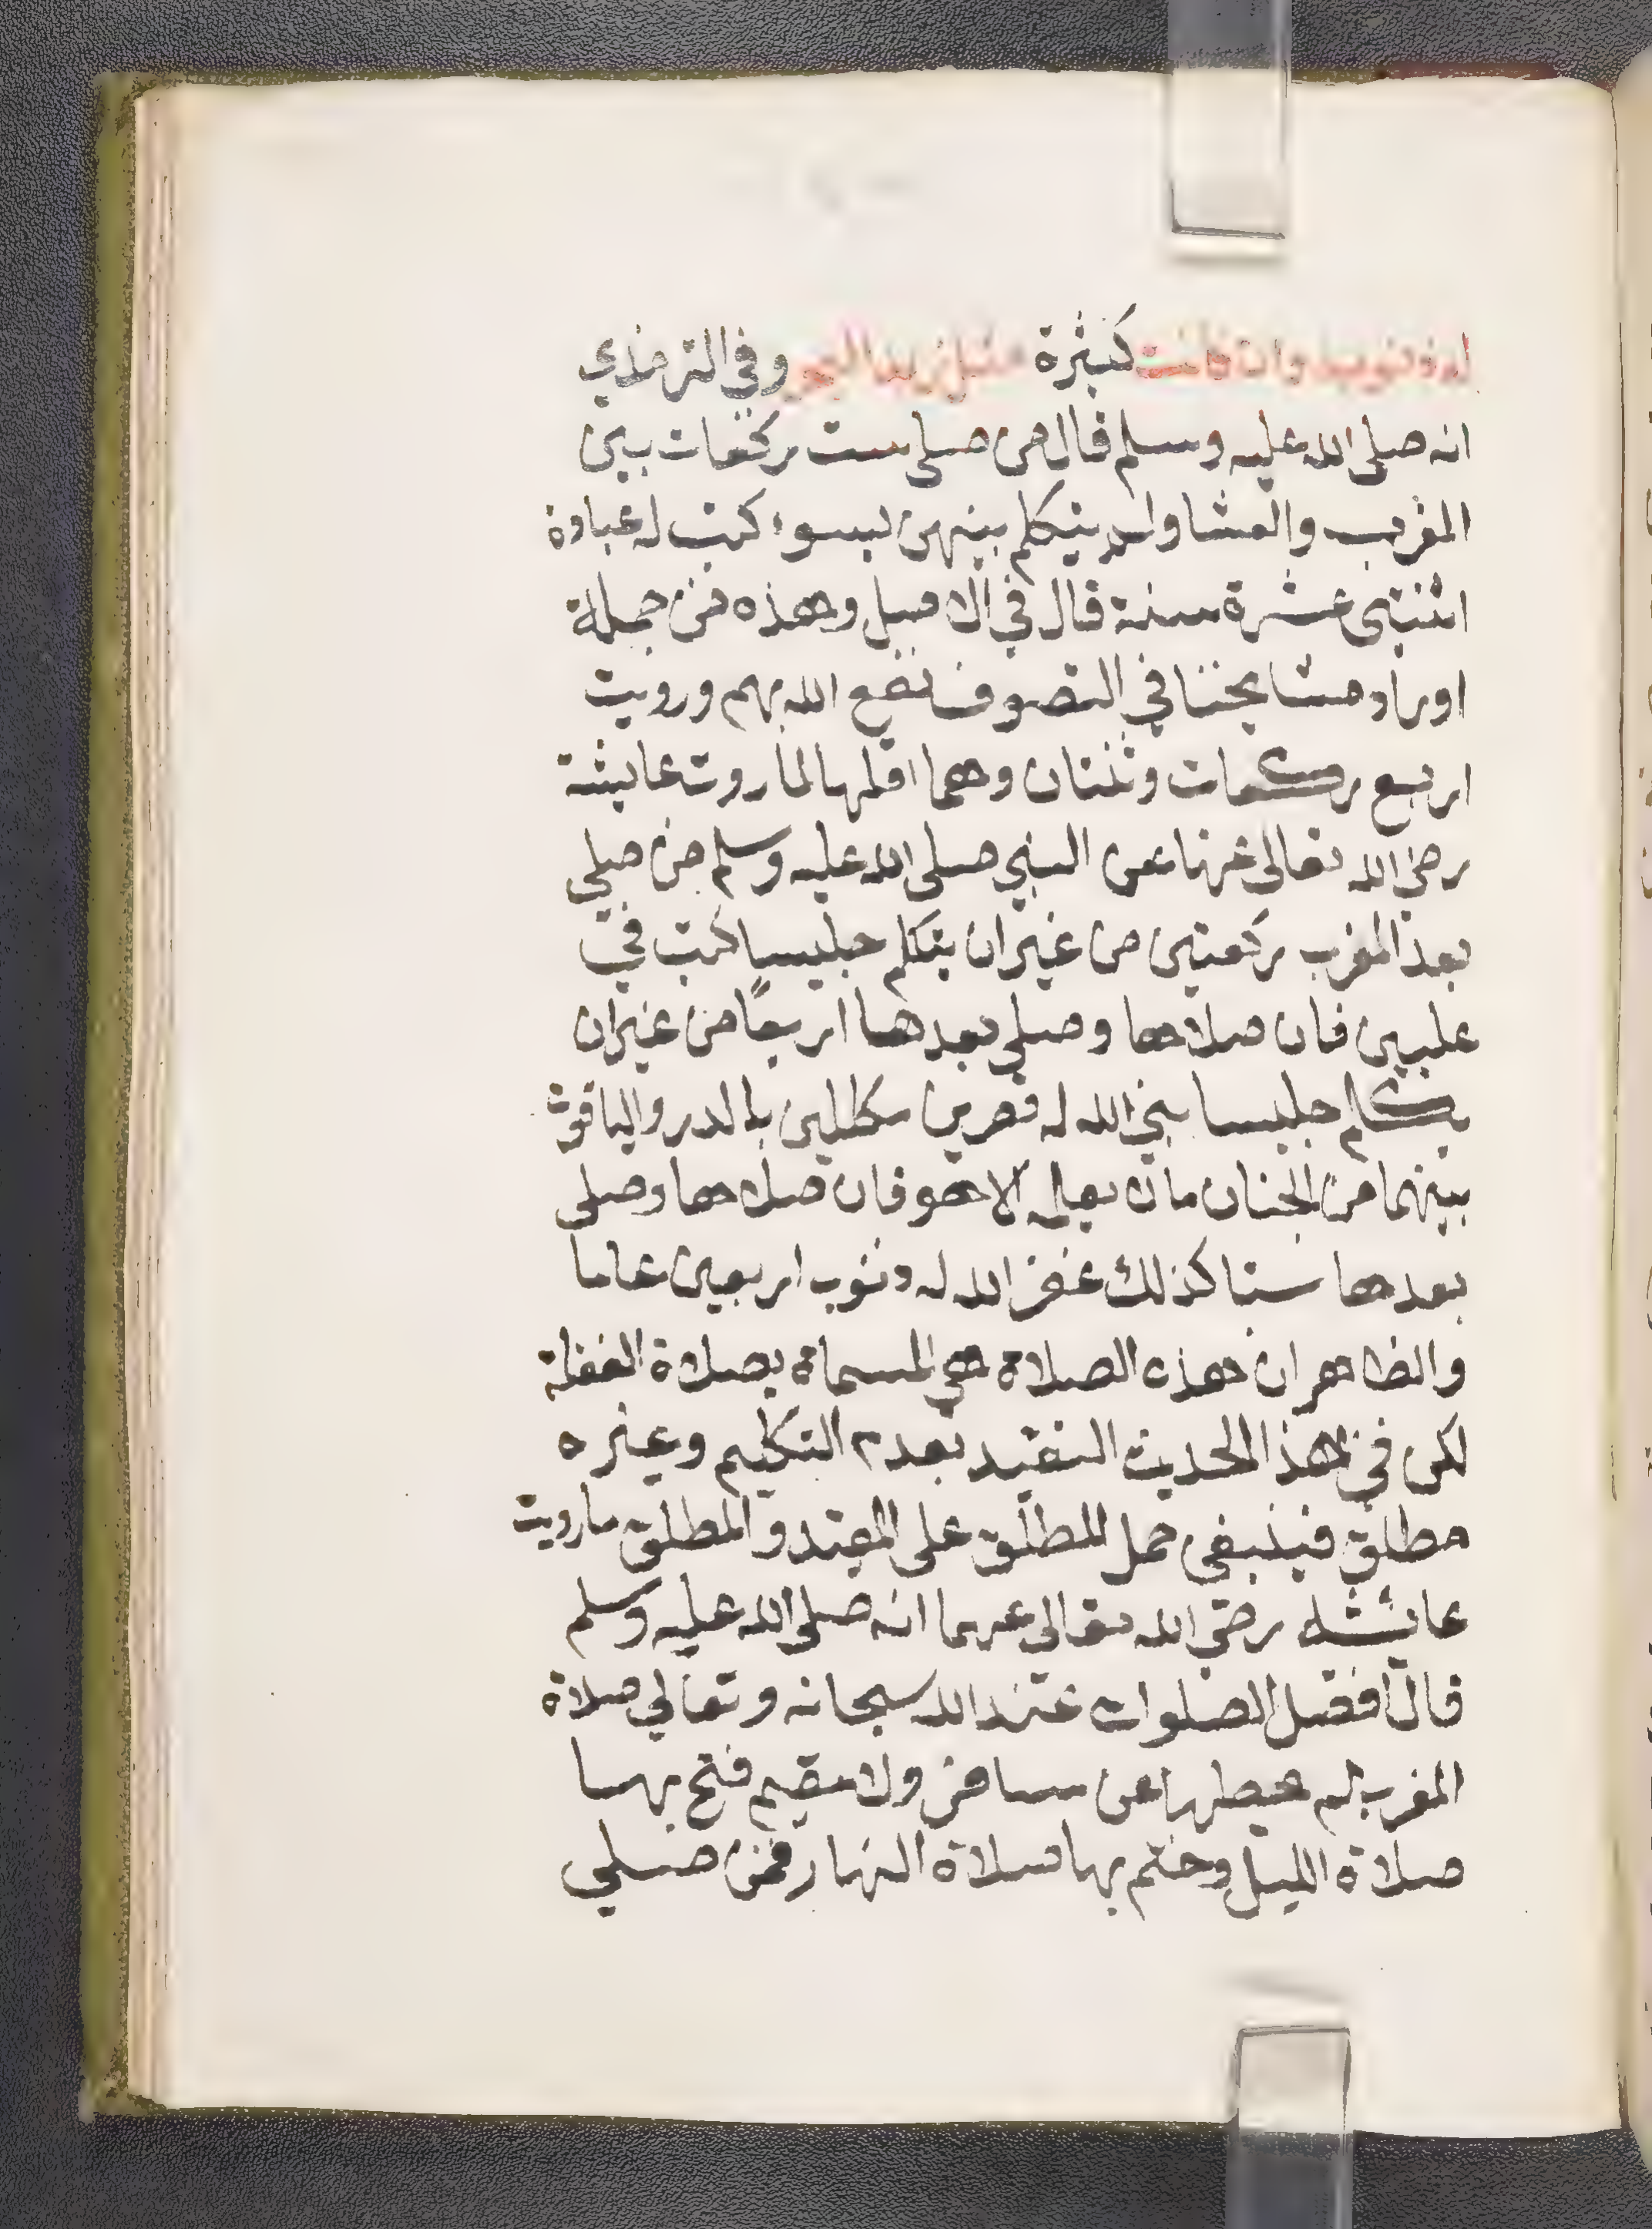 له ذنوبه وان كانت كثيرة مثل زبد البحر وفي الترمذي
انه صلى الله عليه وسلم قال من صلى ست ركعات بين
المغرب والعشا ولم يتكلم بينهن بسوء كتب له عبادة
اثنتى عشرة سنة قال في الاصل وهذه من جملة
اوراد مشايخنا في التصوف نفع الله بهم ورويت
اربع ركعات وثنتان وهما اقلها لما روت عايشة
رضي الله تعالى عنها عن النبي صلى الله عليه وسلم من صلي
بعد المغرب ركعتين من غيران يتكلم جليسا كتب في
عليين فان صلاهما وصلي بعدها اربعًا من غيران
يتكلم جليسا بني الله له قصرين مكللين بالدر والياقوت
بينهما من الجنان مالا يعلمه الا هو فان صلاها وصلى
بعدها ستا كذلك غفر الله له ذنوب اربعين عاما
والظاهر ان هذه الصلاة هي المسماة بصلاة الغفلة
لكن في هذا الحديث التقيد بعدم التكليم وغيره
مطلق فينبغي حمل المطلق على المقيد والمطلق ما رويت
عايشة رضي الله تعالى عنها انه صلى الله عليه وسلم
قال افضل الصلوات عند الله سبحانه وتعالي صلاة
المغرب لم يحطها عن مسافر ولا مقيم فتح بها
صلاة الليل وختم بها صلاة النهار فمن صلي